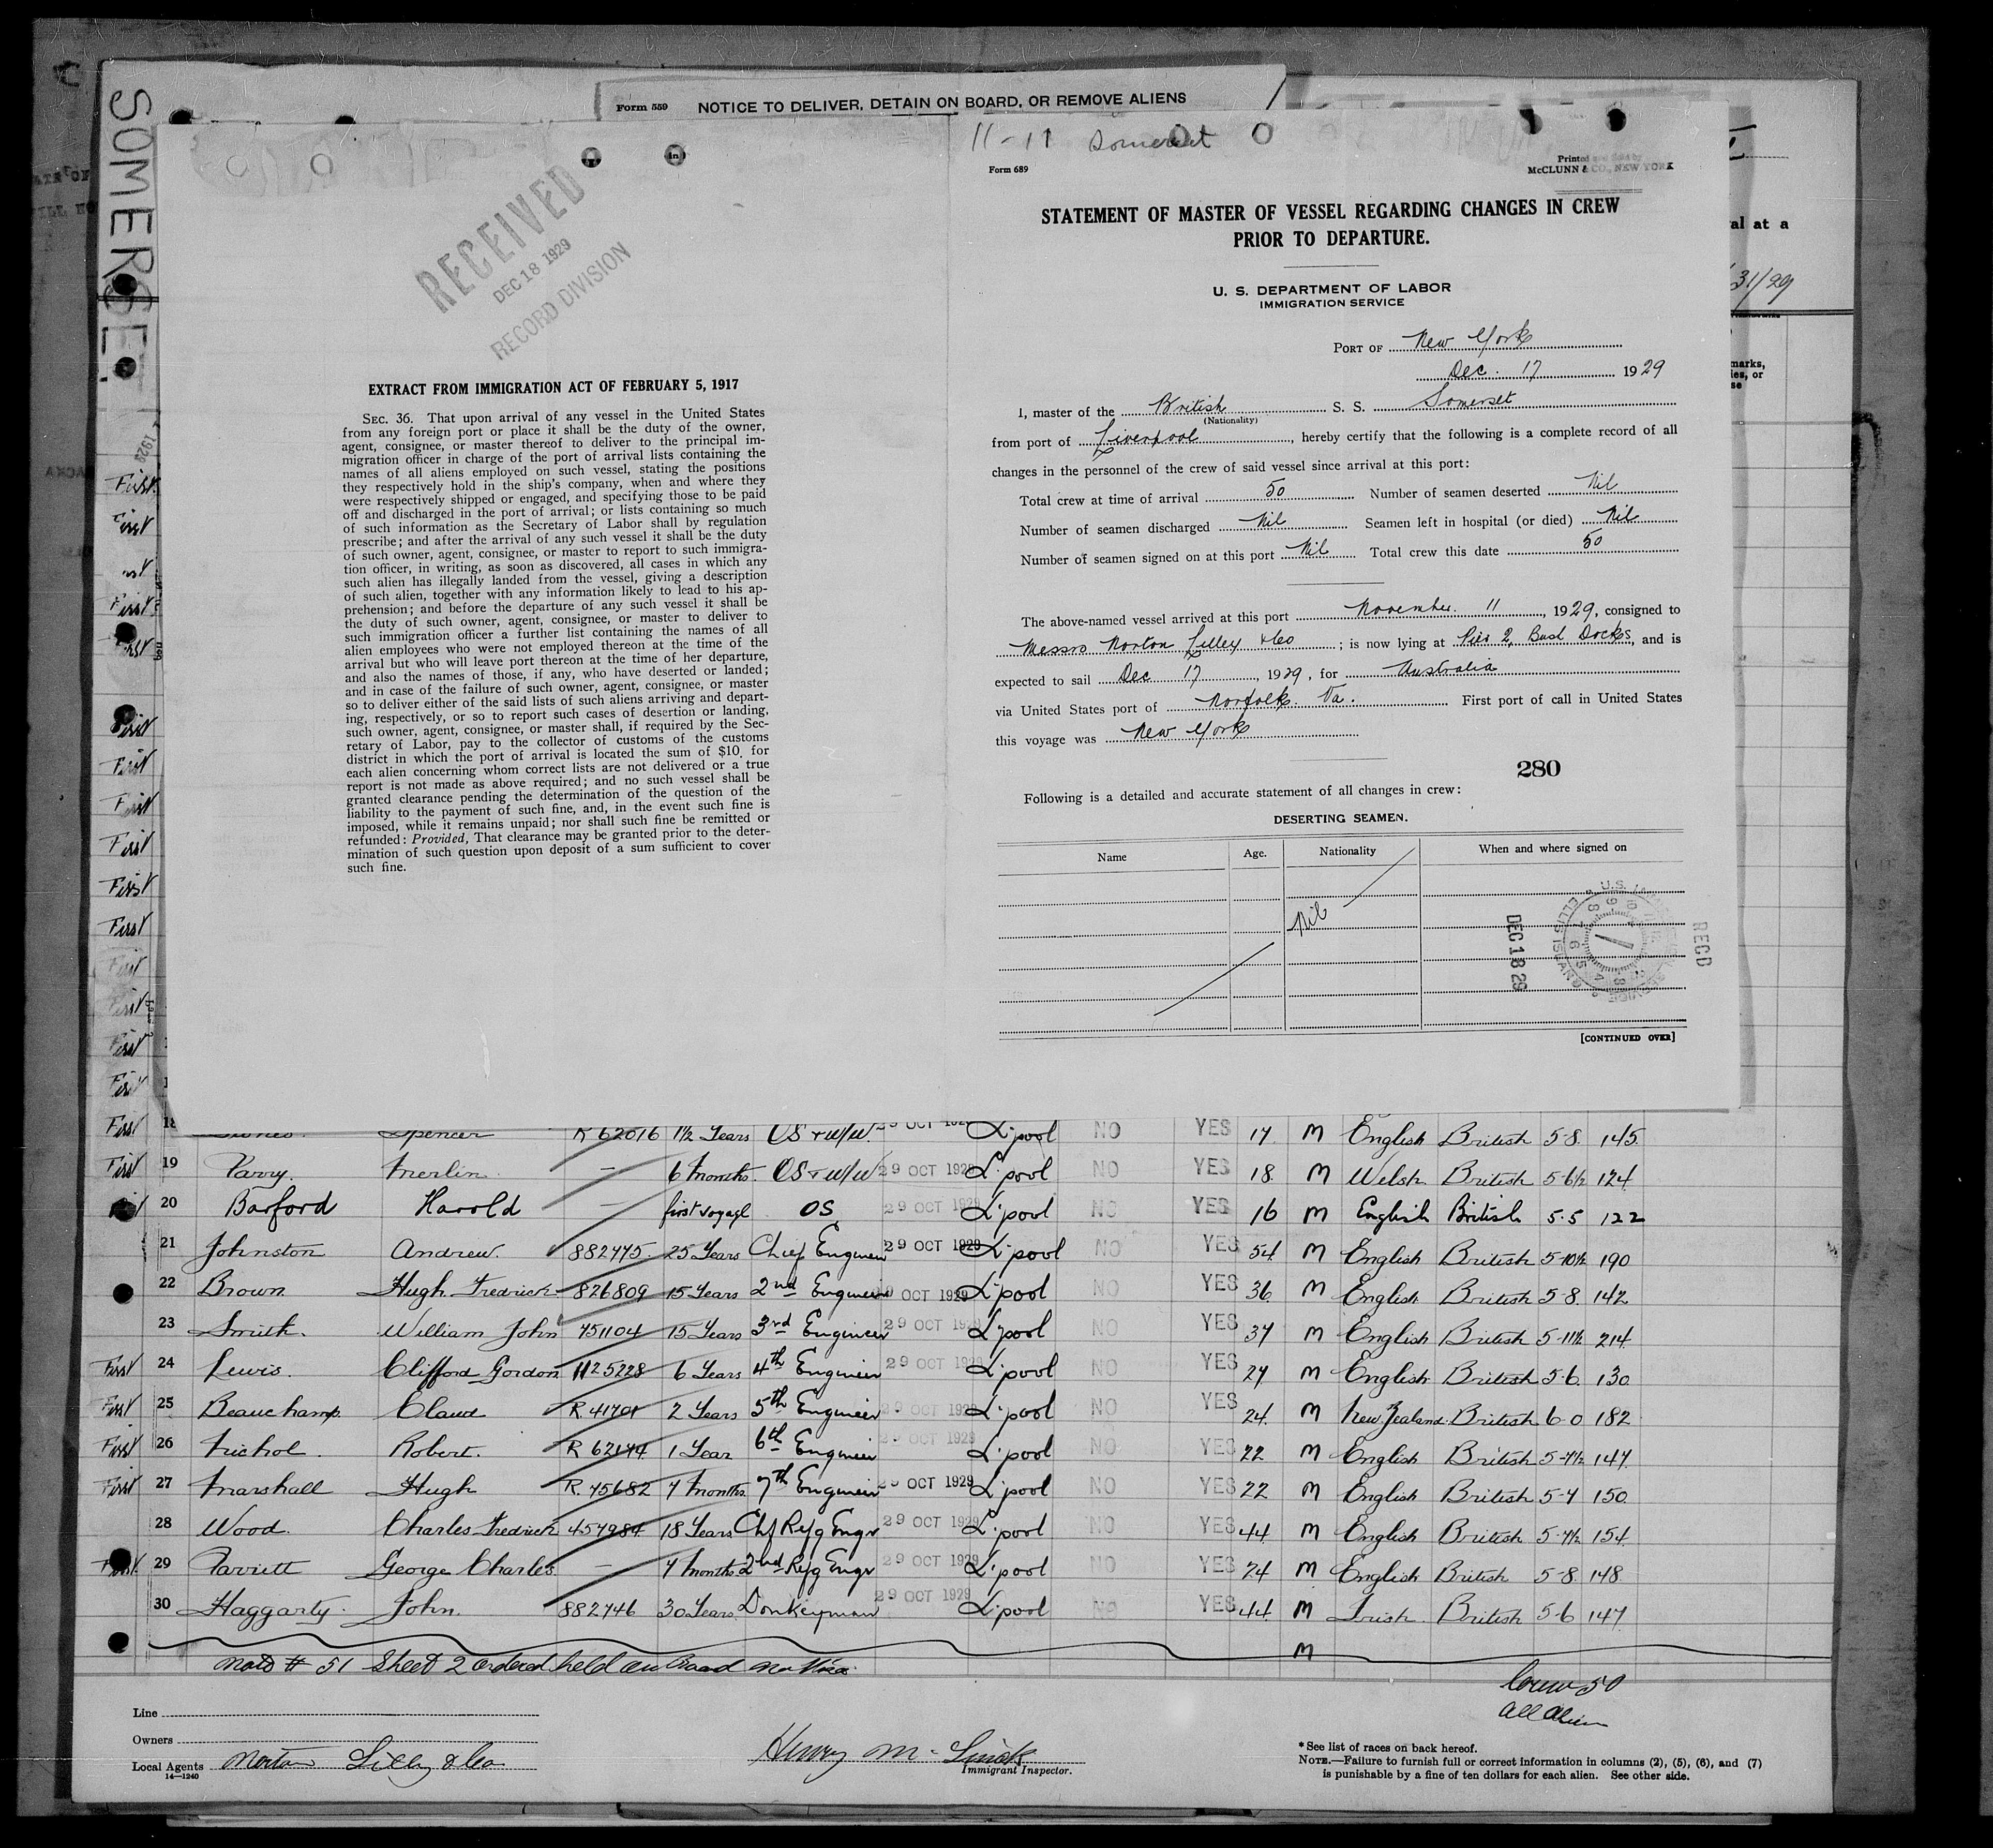 SOMERSET.
Form 559 NOTICE TO DELIVER, DETAIN ON BOARD, OR REMOVE ALIENS
al at a
31/29
marks,
ies, or
se
RECEIVED
DEC 18 1929
RECORD DIVISION
EXTRACT FROM IMMIGRATION ACT OF FEBRUARY 5, 1917
SEC. 36. That upon arrival of any vessel in the United States
from any foreign port or place it shall be the duty of the owner,
agent, consignee, or master thereof to deliver to the principal im-
migration officer in charge of the port of arrival lists containing the
names of all aliens employed on such vessel, stating the positions
they respectively hold in the ship's company, when and where they
were respectively shipped or engaged, and specifying those to be paid
off and discharged in the port of arrival; or lists containing so much
of such information as the Secretary of Labor shall by regulation
prescribe; and after the arrival of any such vessel it shall be the duty
of such owner, agent, consignee, or master to report to such immigra-
tion officer, in writing, as soon as discovered, all cases in which any
such alien has illegally landed from the vessel, giving a description
of such alien, together with any information likely to lead to his ap-
prehension; and before the departure of any such vessel it shall be
the duty of such owner, agent, consignee, or master to deliver to
such immigration officer a further list containing the names of all
alien employees who were not employed thereon at the time of the
arrival but who will leave port thereon at the time of her departure,
and also the names of those, if any, who have deserted or landed;
and in case of the failure of such owner, agent, consignee, or master
so to deliver either of the said lists of such aliens arriving and depart-
ing, respectively, or so to report such cases of desertion or landing,
such owner, agent, consignee, or master shall, if required by the Sec-
retary of Labor, pay to the collector of customs of the customs
district in which the port of arrival is located the sum of $10 for
each alien concerning whom correct lists are not delivered or a true
report is not made as above required; and no such vessel shall be
granted clearance pending the determination of the question of the
liability to the payment of such fine, and, in the event such fine is
imposed, while it remains unpaid; nor shall such fine be remitted or
refunded: Provided, That clearance may be granted prior to the deter-
mination of such question upon deposit of a sum sufficient to cover
such fine.
11-11 Somerset
Form 689
Printed and Sold by
McCLUNN & CO., NEW YORK
STATEMENT OF MASTER OF VESSEL REGARDING CHANGES IN CREW
PRIOR TO DEPARTURE.
U. S. DEPARTMENT OF LABOR
IMMIGRATION SERVICE
PORT OF New York
Dec. 17 1929
I, master of the British S. S. Somerset
(Nationality)
from port of Liverpool, hereby certify that the following is a complete record of all
changes in the personnel of the crew of said vessel since arrival at this port:
Total crew at time of arrival 50 Number of seamen deserted Nil
Number of seamen discharged Nil Seamen left in hospital (or died) Nil
Number of seamen signed on at this port Nil Total crew this date 50
The above-named vessel arrived at this port November 11, 1929, consigned to
Messrs Norton Lilley & Co; is now lying at Pier 2, Bush Docks, and is
expected to sail Dec 17, 1929, for Australia
via United States port of Norfolk. Va. First port of call in United States
this voyage was New York
280
Following is a detailed and accurate statement of all changes in crew:
DESERTING SEAMEN.
Name Age. Nationality When and where signed on
Nil
DEC 18 29
RECD
[CONTINUED OVER]
First 18 Spencer R 62016 1½ Years OS & W/W. L'pool NO YES 17 M English British 5-8. 145.
First 19 Parry. Merlin. — 6 Months. OS & W/W 29 OCT 1929 L'pool NO YES 18. M Welsh British 5-6½ 124
20 Barford Harold — first voyage OS 29 OCT 1929 L'pool NO YES 16 M English British 5.5 122
21 Johnston Andrew. 882475. 25 Years Chief Engineer 29 OCT 1929 L'pool NO YES 54 M English British 5-10½ 190
22 Brown Hugh Fredrick 826809 15 Years 2nd Engineer 29 OCT 1929 L'pool NO YES 36 M English British 5-8. 142
23 Smith. William John 751104 15 Years 3rd Engineer 29 OCT 1929 L'pool NO YES 37 M English British 5-11½ 214
First 24 Lewis. Clifford Gordon 1125228 6 Years 4th Engineer 29 OCT 1929 L'pool NO YES 27 M English British 5-6. 130
First 25 Beauchamp. Claud R 41701 2 Years 5th Engineer 29 OCT 1929 L'pool NO YES 24. M New Zealand. British 6-0 182
First 26 Nichol. Robert. R 62174 1 Year 6th Engineer 29 OCT 1929 L'pool NO YES 22 M English British 5-7½ 147
First 27 Marshall Hugh R. 45682 7 Months. 7th Engineer 29 OCT 1929 L'pool NO YES 22 M English British 5-7 150
28 Wood. Charles Fredrick 457984 18 Years Chf Refg Engr 29 OCT 1929 L'pool NO YES 44 M English British 5-7½ 154
First. 29 Parriett George Charles. — 7 Months 2nd Refg Engr 29 OCT 1929 L'pool NO YES 24 M English British 5-8. 148
30 Haggarty. John. 882746 30 Years Donkeyman 29 OCT 1929 L'pool NO YES 44 M Irish British 5-6 147
M
Note # 51 Sheet 2 ordered held on board no visa.
Crew 50
all alien
Line
Owners
Local Agents Norton Lilly & Co
14—1240
Henry M.
Immigrant Inspector.
* See list of races on back hereof.
NOTE.—Failure to furnish full or correct information in columns (2), (5), (6), and (7)
is punishable by a fine of ten dollars for each alien. See other side.